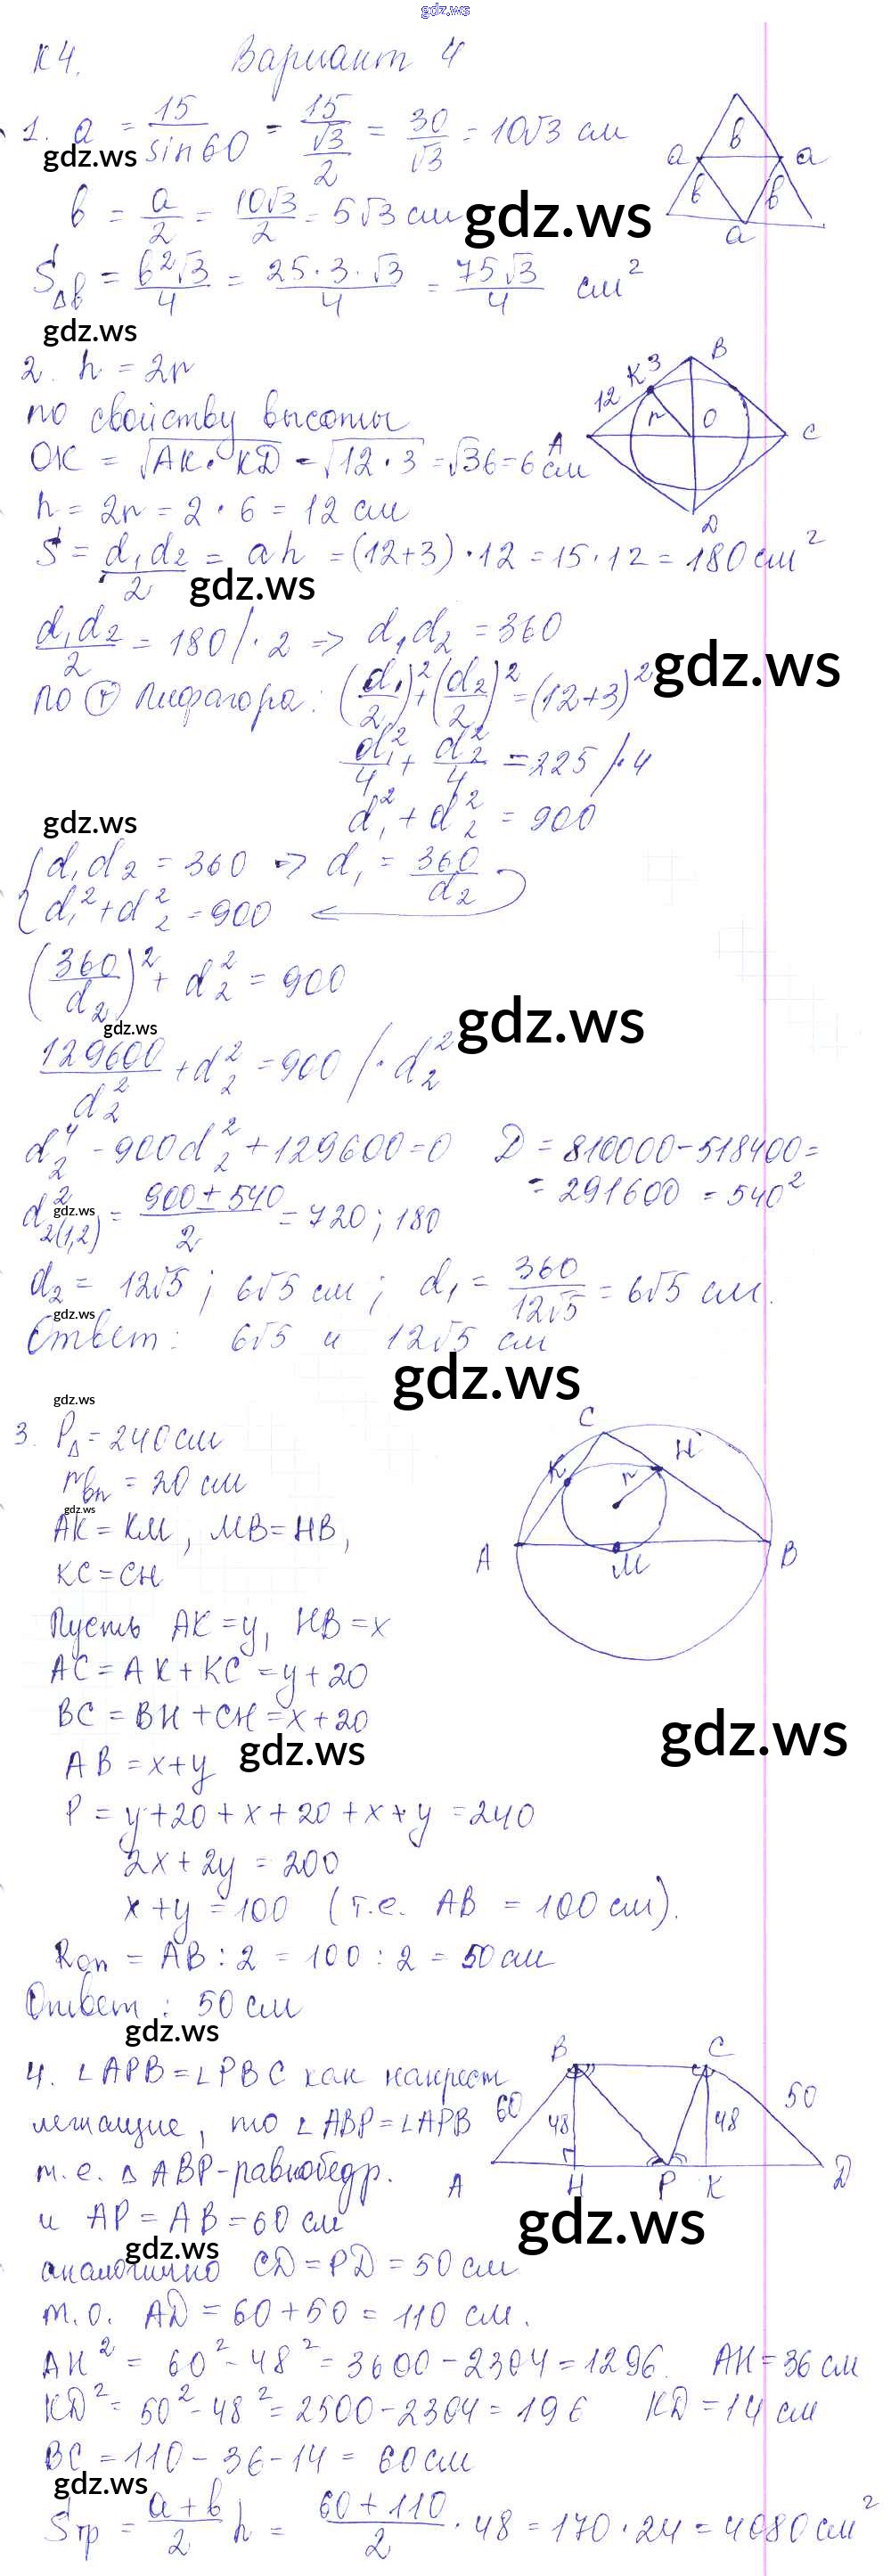 gdz.ws
К4. Вариант 4
1. a = 15/sin60 = 15/(√3/2) = 30/√3 = 10√3 см
gdz.ws
a в a
в в
a
в = a/2 = 10√3/2 = 5√3 см
gdz.ws
S△в = в²√3/4 = 25·3·√3/4 = 75√3/4 см²
gdz.ws
2. h = 2r
по свойству высоты
OK = √AK·KD = √12·3 = √36 = 6 см
12 K 3 B
A r O C
D
h = 2r = 2·6 = 12 см
S = d₁d₂/2 = ah = (12+3)·12 = 15·12 = 180 см²
gdz.ws
d₁d₂/2 = 180 /·2 => d₁d₂ = 360
gdz.ws
по т Пифагора: (d₁/2)² + (d₂/2)² = (12+3)²
d₁²/4 + d₂²/4 = 225 /·4
gdz.ws
d₁² + d₂² = 900
{ d₁d₂ = 360 => d₁ = 360/d₂
d₁² + d₂² = 900
(360/d₂)² + d₂² = 900
gdz.ws
gdz.ws
129600/d₂² + d₂² = 900 /·d₂²
d₂⁴ - 900d₂² + 129600 = 0 D = 810000 - 518400 =
= 291600 = 540²
gdz.ws
d²₂(1,2) = 900±540/2 = 720; 180
d₂ = 12√5; 6√5 см; d₁ = 360/12√5 = 6√5 см.
gdz.ws
Ответ: 6√5 и 12√5 см
gdz.ws
gdz.ws
3. P△ = 240 см
rвп = 20 см
gdz.ws
C
K r H
A M B
AK = KM, MB = HB,
KC = CH
Пусть AK = y, HB = x
AC = AK + KC = y + 20
BC = BH + CH = x + 20
gdz.ws
AB = x + y
gdz.ws
P = y + 20 + x + 20 + x + y = 240
2x + 2y = 200
x + y = 100 (т.е. AB = 100 см).
Rоп = AB : 2 = 100 : 2 = 50 см
Ответ: 50 см
gdz.ws
4. ∠APB = ∠PBC как накрест
лежащие, то ∠ABP = ∠APB
т.е. △ABP - равнобедр.
и AP = AB = 60 см
B C
60 48 48 50
A H P K D
gdz.ws
gdz.ws
аналогично CD = PD = 50 см
т.о. AD = 60 + 50 = 110 см.
AH² = 60² - 48² = 3600 - 2304 = 1296. AH = 36 см
KD² = 50² - 48² = 2500 - 2304 = 196 KD = 14 см
BC = 110 - 36 - 14 = 60 см
gdz.ws
Sтр = a+b/2 h = 60+110/2 · 48 = 170·24 = 4080 см²